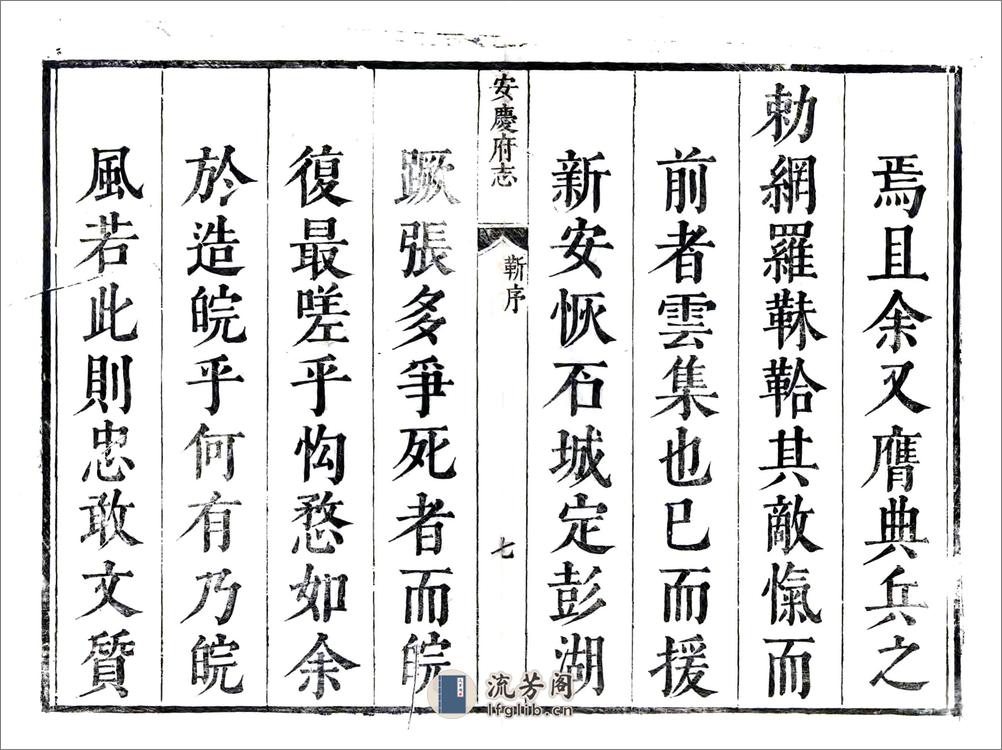 焉且余又膺典兵之
勅網羅韎韐其敵愾而
前者雲集也已而援
新安恢石城定彭湖
安慶府志
靳序
七
蹶張多爭死者而皖
復最嗟乎怐愗如余
於造皖乎何有乃皖
風若此則忠敢文質
流芳阁
lfglib.cn